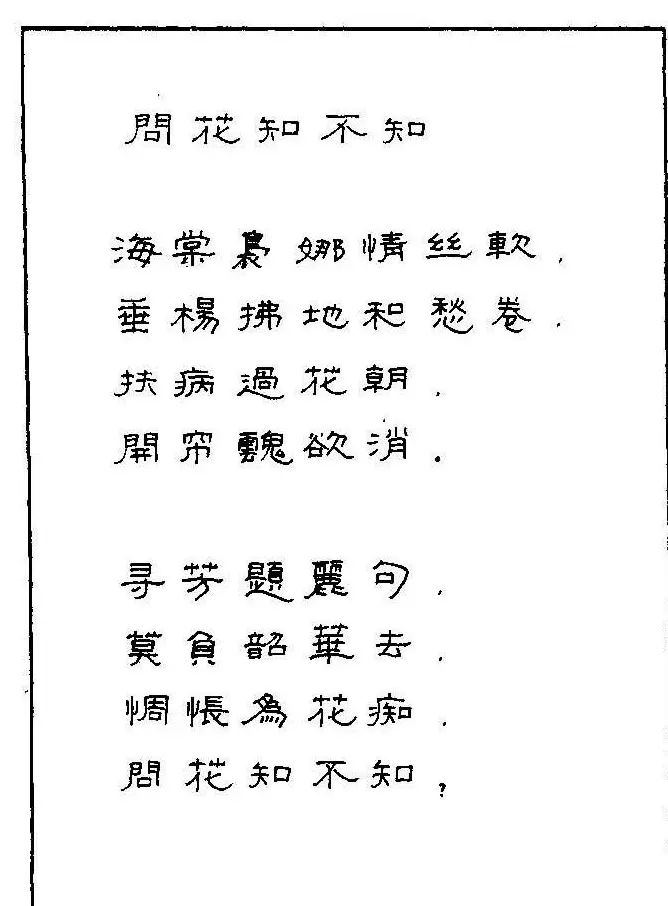 問花知不知
海棠裊娜情丝軟，
垂楊拂地和愁卷．
扶病過花朝，
開帘魂欲消．
寻芳題麗句，
莫負韶華去，
惆悵為花痴，
問花知不知？